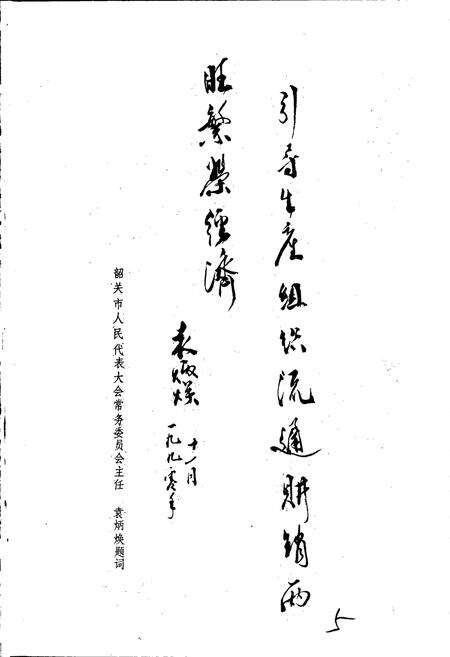 引导生产组织流通购销两
旺繁荣经济
袁炳焕
一九九零年
十一月
韶关市人民代表大会常务委员会主任 袁炳焕题词
5